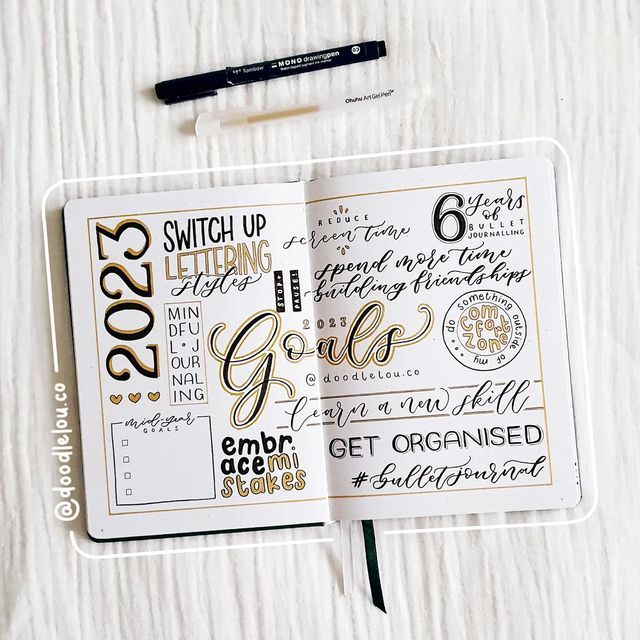 Tombow MONO drawing pen
Ohuhu Art Gel Pen
2023
SWITCH UP
LETTERING
styles
MINDFUL
JOURNALING
mid-year
GOALS
REDUCE
screen time
6 years
of
BULLET
JOURNALLING
STOP &
PAUSE!
spend more time
building friendships
2023
Goals
@doodlelou.co
do something outside of my
COMFORT
ZONE
learn a new skill
embr
ace mi
stakes
GET ORGANISED
#bulletjournal
@doodlelou.co